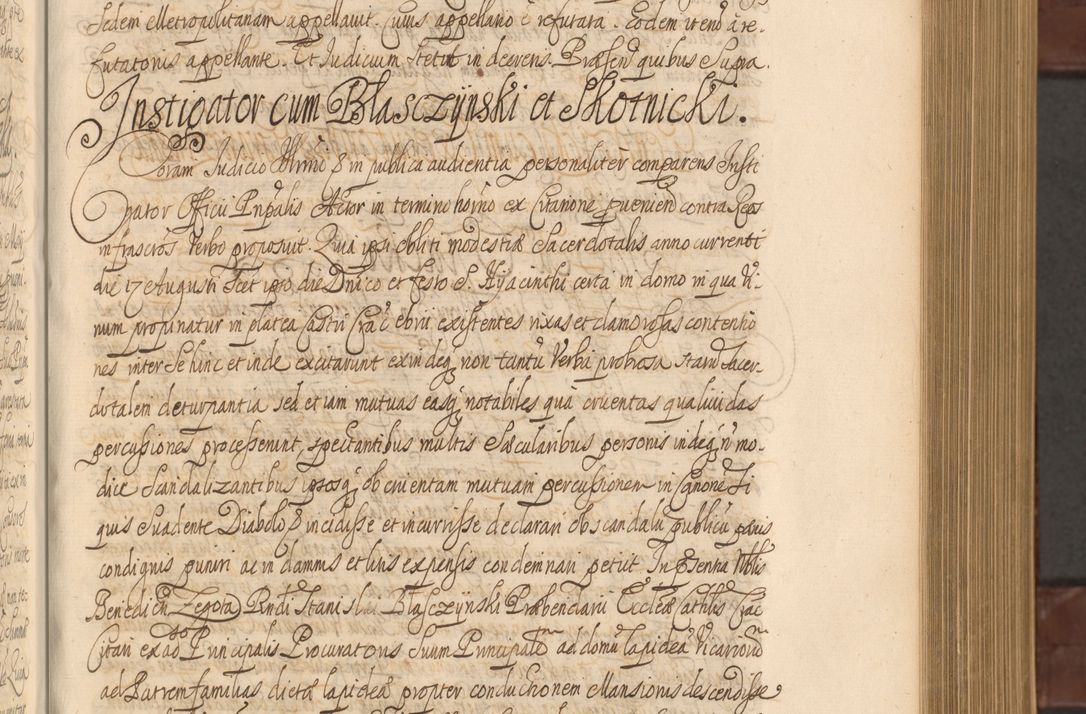 Sedem Metropolitanam appellavit. Cuius appellatio è refutata. Eodem itend à re-
futatonis appellante. Et Judicium stetit in decrens. Præsen quibus Supra.
Instigator cum Błasczÿnski et Skotnicki.
Coram Judicio Illrmo & in publica audientia personalitèr comparens Insti
gator Officii Pnpalis Actor in termino hõrno ex Citatione pveniend contra Reos
infrascros verbo proposuit. Quia ipsi obliti modestiæ Sacerdotalis anno currenti
die 17 Augusti scet ipso die Dnico et festo S. Hyacinthi certa in domo in qua Vi-
num propinatur in platea Castri Crac ebrii existentes rixas et clamorosas contentio
nes inter se hinc et inde excitarunt exindeq non tantũ verba probrosa statũ Sacer-
dotalem deturpantia sed etiam mutuas easq notabiles quã cruentas qualiuidas
percussiones processerunt, spectantibus multis Sæcularibus personis indeq ñ mo-
dice scandalizantibus ipsosq ob cruentam mutuam percussionem in Canone Si
quis Suadente Diabolo & incidisse et incurrisse declarari ob scandalũ publicũ pænis
condignis puniri ac in damnis et litis expensis condemnari petiit. In Psentia Nblis
Benedicti Zegota Rndi Stanislai Błasczynski Præbendarii Eccleæ Cathlis Crac
Citati ex ad Principalis Procuratoris suum Principale ad domũ lapideã Vicariorũ
ad Patremfamilias dictæ lapideæ propter conductionem Mansionis descendisse